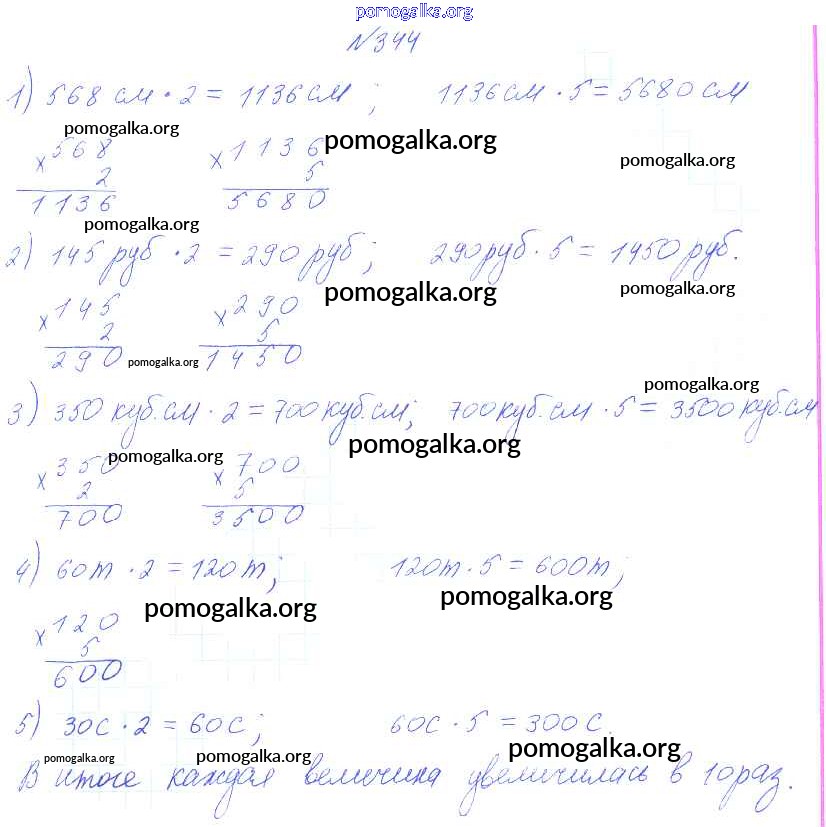 pomogalka.org
№344
1) 568 см · 2 = 1136 см ; 1136 см · 5 = 5680 см
pomogalka.org pomogalka.org pomogalka.org
× 568 × 1136
2 5
1136 5680
pomogalka.org
2) 145 руб · 2 = 290 руб ; 290 руб · 5 = 1450 руб.
pomogalka.org pomogalka.org
× 145 × 290
2 5
290 pomogalka.org 1450
pomogalka.org
3) 350 куб.см · 2 = 700 куб.см; 700 куб.см · 5 = 3500 куб.см
pomogalka.org pomogalka.org
× 350 × 700
2 5
700 3500
4) 60т · 2 = 120т; 120т · 5 = 600т;
pomogalka.org pomogalka.org
× 120
5
600
5) 30с · 2 = 60с; 60с · 5 = 300с.
pomogalka.org pomogalka.org pomogalka.org
В итоге каждая величина увеличилась в 10 раз.